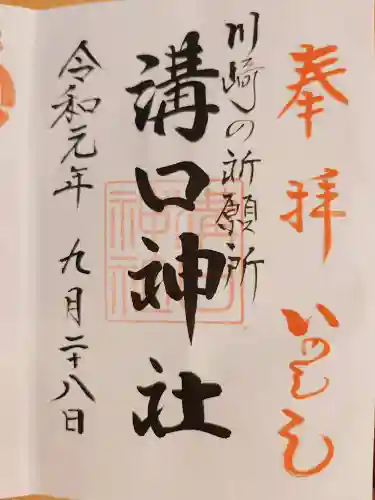 奉拝 いのしし
川崎の祈願所
溝口神社
令和元年 九月二十八日
溝口神社